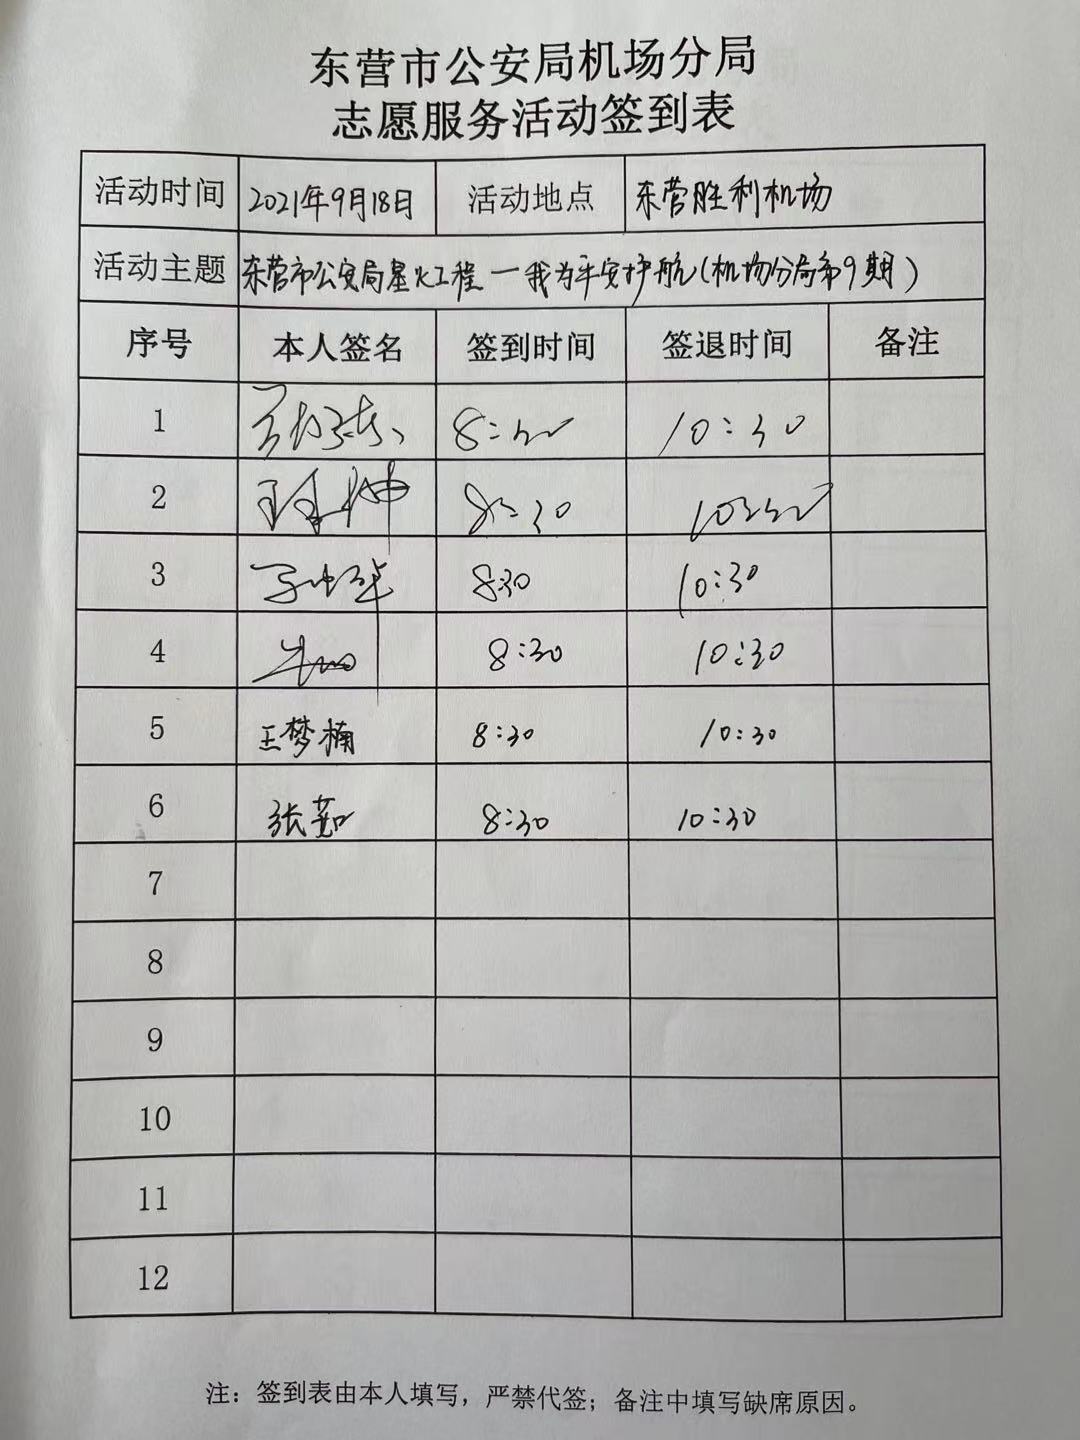 东营市公安局机场分局
志愿服务活动签到表
活动时间 2021年9月18日 活动地点 东营胜利机场
活动主题 东营市公安局星火工程一我为平安护航(机场分局第9期)
序号 本人签名 签到时间 签退时间 备注
1 8:30 10:30
2 8:30 10:30
3 8:30 10:30
4 8:30 10:30
5 王梦楠 8:30 10:30
6 张茹 8:30 10:30
7
8
9
10
11
12
注：签到表由本人填写，严禁代签；备注中填写缺席原因。